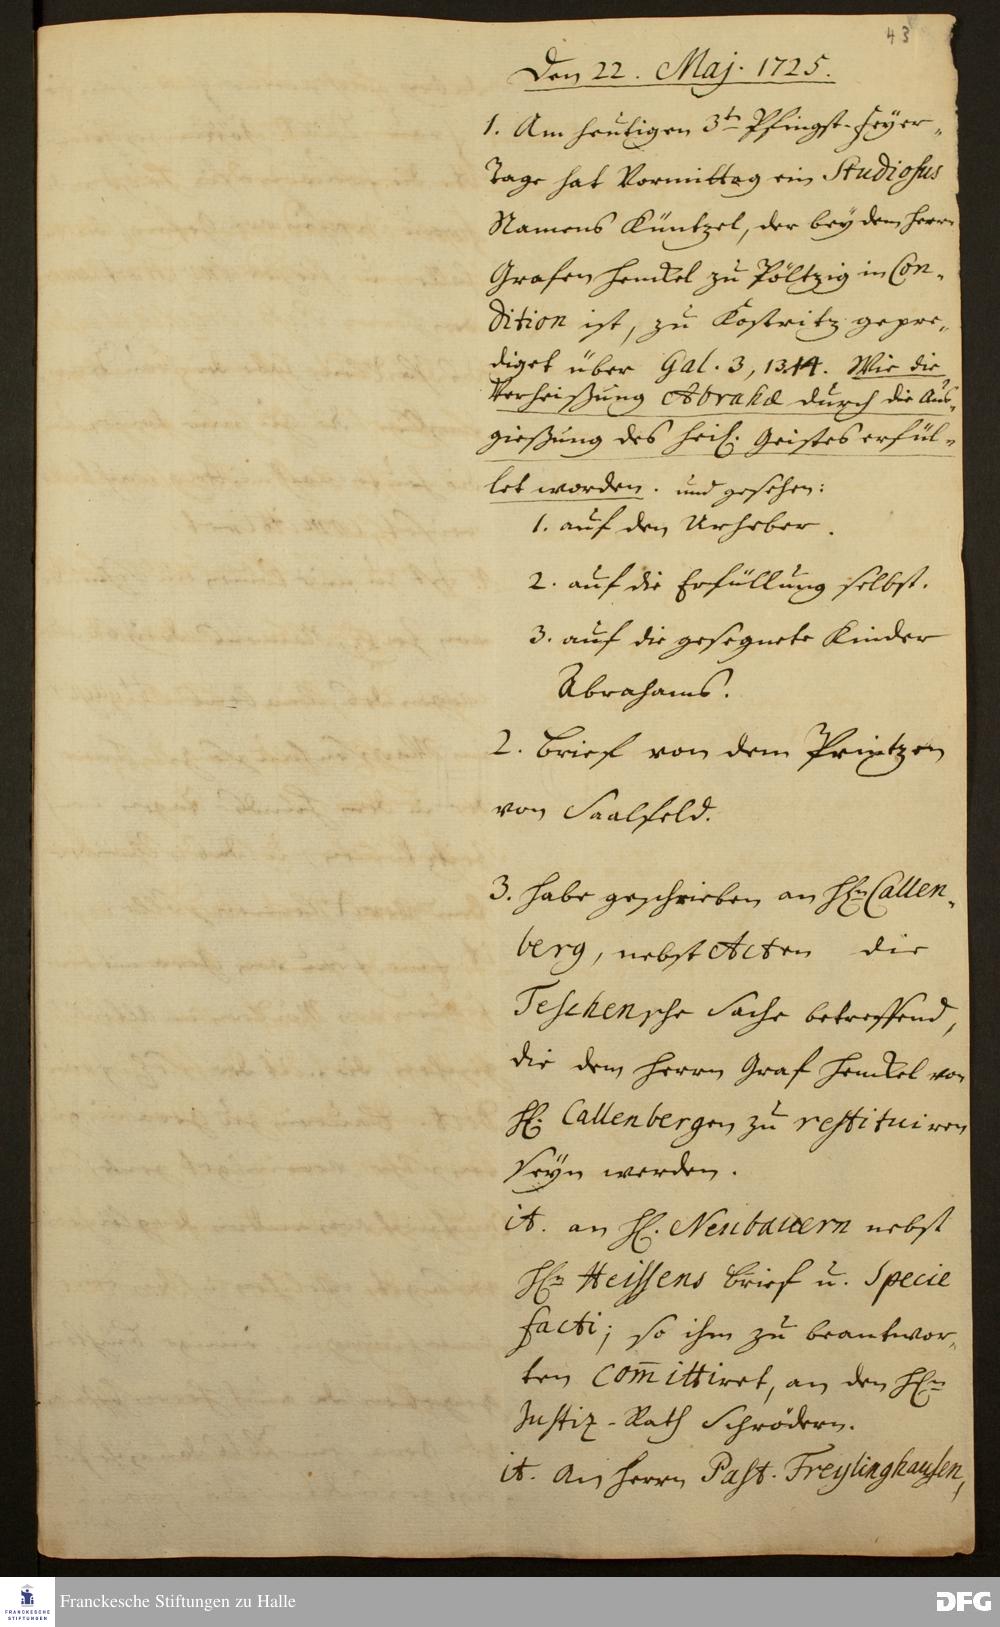 43
Den 22. Maj. 1725.
1. Am heutigen 3tn Pfingst-Feyer-
Tage hat Vormittag ein Studiosus
Namens Küntzel, der bey dem Herrn
Grafen Henckel zu Pöltzig in Con-
dition ist, zu Köstritz gepre-
diget über Gal. 3, 13.14. Wie die
Verheißung Abrahæ durch die Aus-
gießung des heil. Geistes erfül-
let worden. und gesehen:
1. auf den Urheber.
2. auf die Erfüllung selbst.
3. auf die gesegnete Kinder
Abrahams.
2. Brief von dem Printzen
von Saalfeld.
3. habe geschrieben an HEn Callen-
berg, nebst Acten die
Teschensche Sache betreffend,
die dem Herrn Graf Henckel von
H. Callenbergen zu restituiren
seyn werden.
it. an H. Neubauern nebst
HEn Heissens Brief u. Specie
facti; so ihm zu beantwor-
ten com̅ittiret, an den HEn
Justiz-Rath Schrödern.
it. An Herrn Past. Freylinghausen,
FRANCKESCHE
STIFTUNGEN
Franckesche Stiftungen zu Halle
DFG